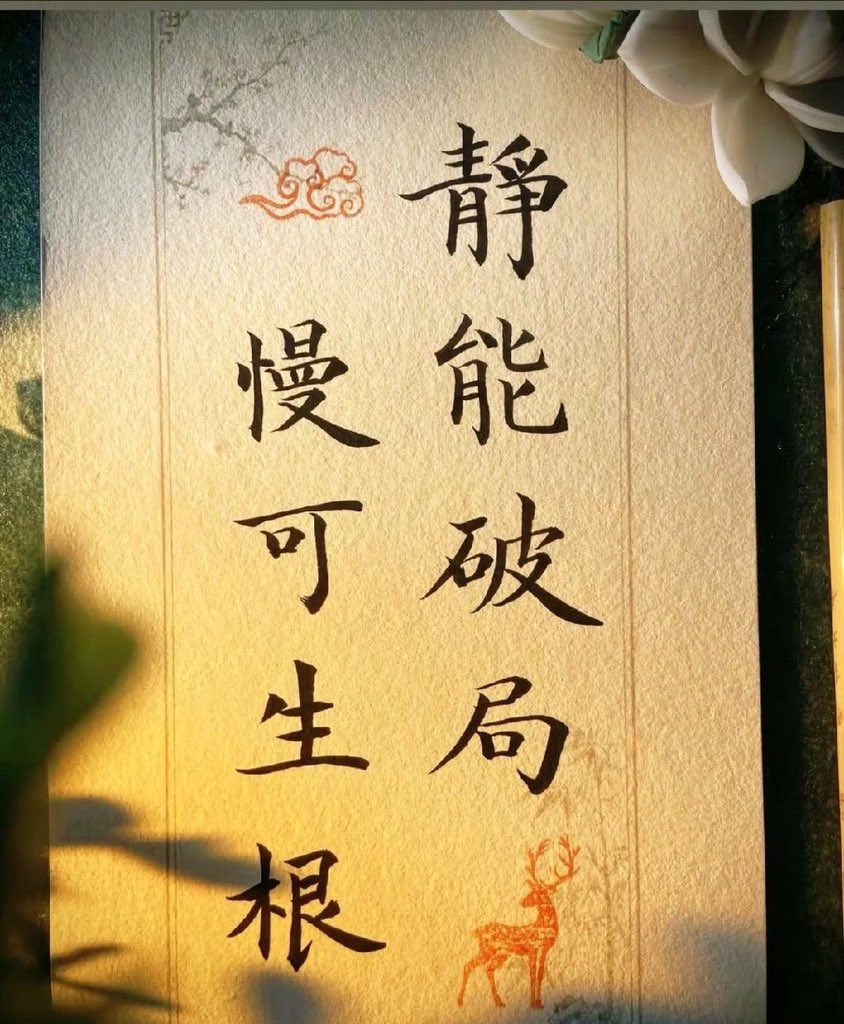 靜能破局
慢可生根